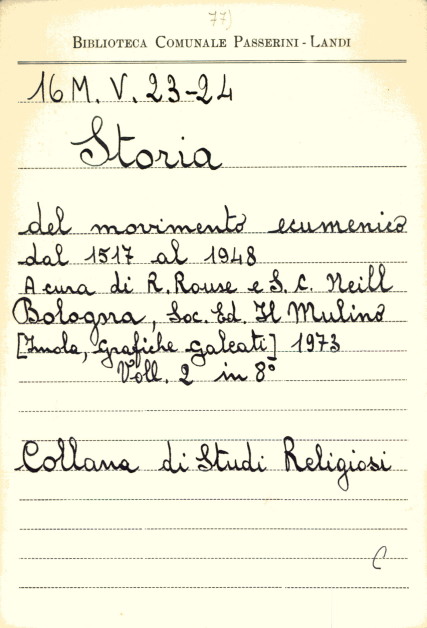 77)
BIBLIOTECA COMUNALE PASSERINI - LANDI
16 M. V. 23-24
Storia
del movimento ecumenico
dal 1517 al 1948
A cura di R. Rouse e S. C. Neill
Bologna, Soc. Ed. Il Mulino
[Imola, Grafiche Galeati] 1973
Voll. 2 in 8°
Collana di Studi Religiosi
C